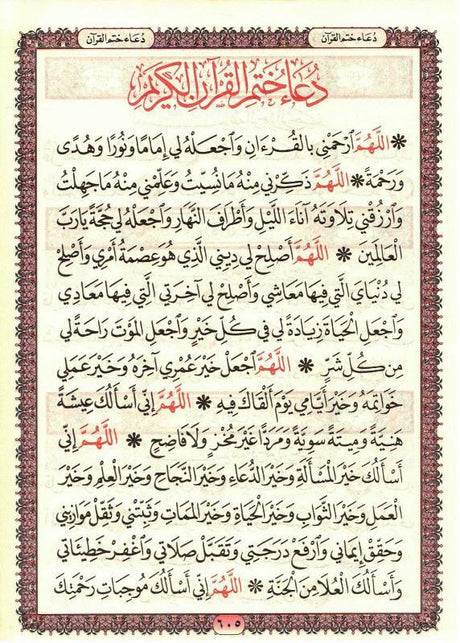 دعاء ختم القرآن
دعاء ختم القرآن
دُعَاءُ خَتْمِ الْقُرْآنِ الْكَرِيمِ
* اللَّهُمَّ ٱرْحَمْنِي بِالْقُرْءَانِ وَٱجْعَلْهُ لِي إِمَامًا وَنُورًا وَهُدًى
وَرَحْمَةً * اللَّهُمَّ ذَكِّرْنِي مِنْهُ مَا نُسِّيتُ وَعَلِّمْنِي مِنْهُ مَا جَهِلْتُ
وَٱرْزُقْنِي تِلَاوَتَهُ آنَاءَ اللَّيْلِ وَأَطْرَافَ النَّهَارِ وَٱجْعَلْهُ لِي حُجَّةً يَا رَبَّ
الْعَالَمِينَ * اللَّهُمَّ أَصْلِحْ لِي دِينِي الَّذِي هُوَ عِصْمَةُ أَمْرِي وَأَصْلِحْ
لِي دُنْيَايَ الَّتِي فِيهَا مَعَاشِي وَأَصْلِحْ لِي آخِرَتِي الَّتِي فِيهَا مَعَادِي
وَٱجْعَلِ الْحَيَاةَ زِيَادَةً لِي فِي كُلِّ خَيْرٍ وَٱجْعَلِ الْمَوْتَ رَاحَةً لِي
مِنْ كُلِّ شَرٍّ * اللَّهُمَّ ٱجْعَلْ خَيْرَ عُمْرِي آخِرَهُ وَخَيْرَ عَمَلِي
خَوَاتِمَهُ وَخَيْرَ أَيَّامِي يَوْمَ أَلْقَاكَ فِيهِ * اللَّهُمَّ إِنِّي أَسْأَلُكَ عِيشَةً
هَنِيَّةً وَمِيتَةً سَوِيَّةً وَمَرَدًّا غَيْرَ مُخْزٍ وَلَا فَاضِحٍ * اللَّهُمَّ إِنِّي
أَسْأَلُكَ خَيْرَ الْمَسْأَلَةِ وَخَيْرَ الدُّعَاءِ وَخَيْرَ النَّجَاحِ وَخَيْرَ الْعِلْمِ وَخَيْرَ
الْعَمَلِ وَخَيْرَ الثَّوَابِ وَخَيْرَ الْحَيَاةِ وَخَيْرَ الْمَمَاتِ وَثَبِّتْنِي وَثَقِّلْ مَوَازِينِي
وَحَقِّقْ إِيمَانِي وَٱرْفَعْ دَرَجَتِي وَتَقَبَّلْ صَلَاتِي وَٱغْفِرْ خَطِيئَاتِي
وَأَسْأَلُكَ الْعُلَا مِنَ الْجَنَّةِ * اللَّهُمَّ إِنِّي أَسْأَلُكَ مُوجِبَاتِ رَحْمَتِكَ
٦٠٥